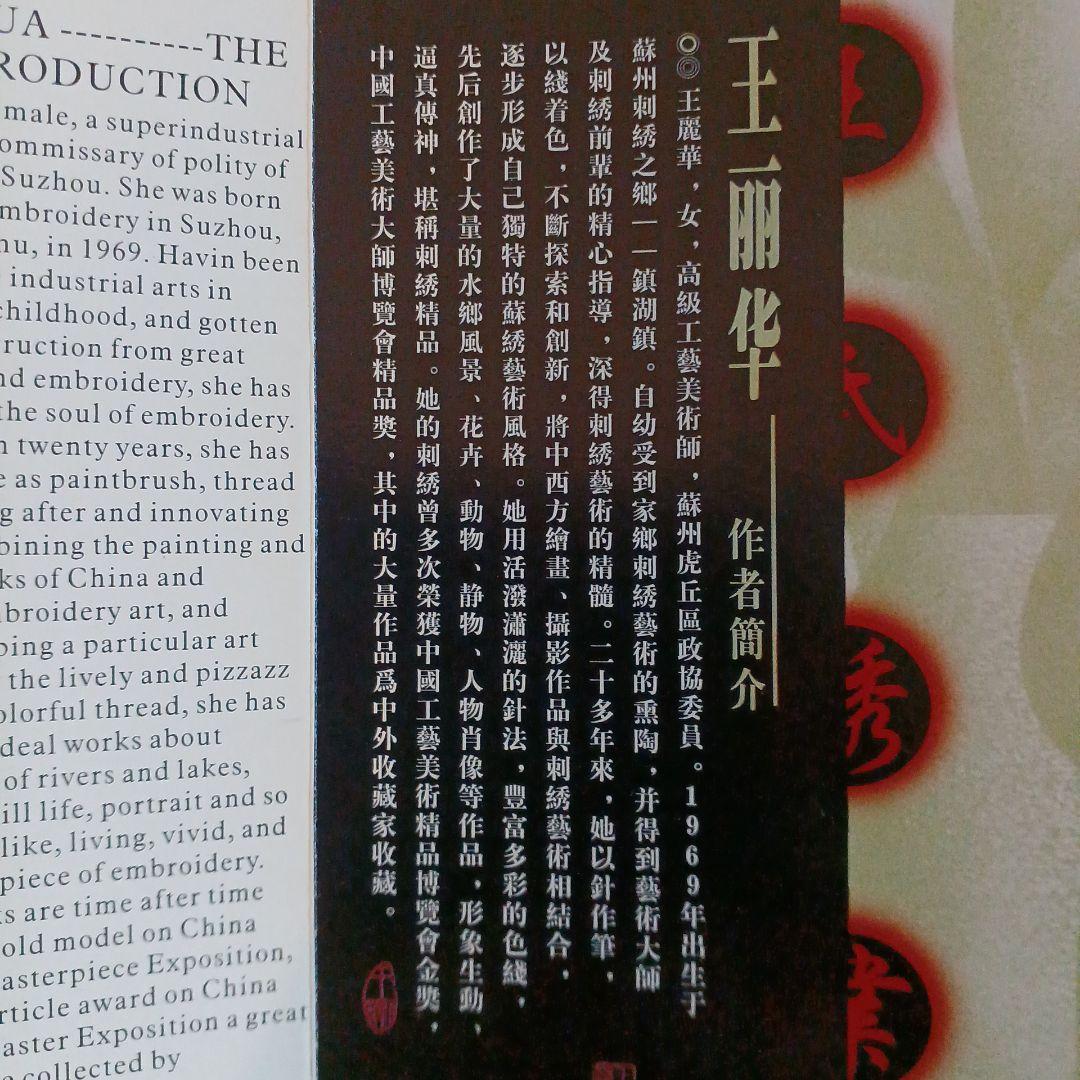 UA ----------THE
RODUCTION
male, a superindustrial
ommissary of polity of
Suzhou. She was born
mbroidery in Suzhou,
hu, in 1969. Havin been
industrial arts in
childhood, and gotten
ruction from great
nd embroidery, she has
the soul of embroidery.
n twenty years, she has
e as paintbrush, thread
g after and innovating
bining the painting and
ks of China and
broidery art, and
ping a particular art
the lively and pizzazz
olorful thread, she has
deal works about
of rivers and lakes,
ill life, portrait and so
like, living, vivid, and
piece of embroidery.
ks are time after time
old model on China
asterpiece Exposition,
rticle award on China
aster Exposition a great
e collected by
王丽华 作者簡介
◎◎王麗華，女，高級工藝美術師，蘇州虎丘區政協委員。1969年出生于
蘇州刺綉之鄉——鎮湖鎮。自幼受到家鄉刺綉藝術的熏陶，并得到藝術大師
及刺綉前輩的精心指導，深得刺綉藝術的精髓。二十多年來，她以針作筆，
以綫着色，不斷探索和創新，將中西方繪畫、攝影作品與刺綉藝術相結合，
逐步形成自己獨特的蘇綉藝術風格。她用活潑瀟灑的針法，豐富多彩的色綫，
先后創作了大量的水鄉風景、花卉、動物、静物、人物肖像等作品，形象生動，
逼真傳神，堪稱刺綉精品。她的刺綉曾多次榮獲中國工藝美術精品博覽會金奬，
中國工藝美術大師博覽會精品獎，其中的大量作品爲中外收藏家收藏。
王
氏
秀
業